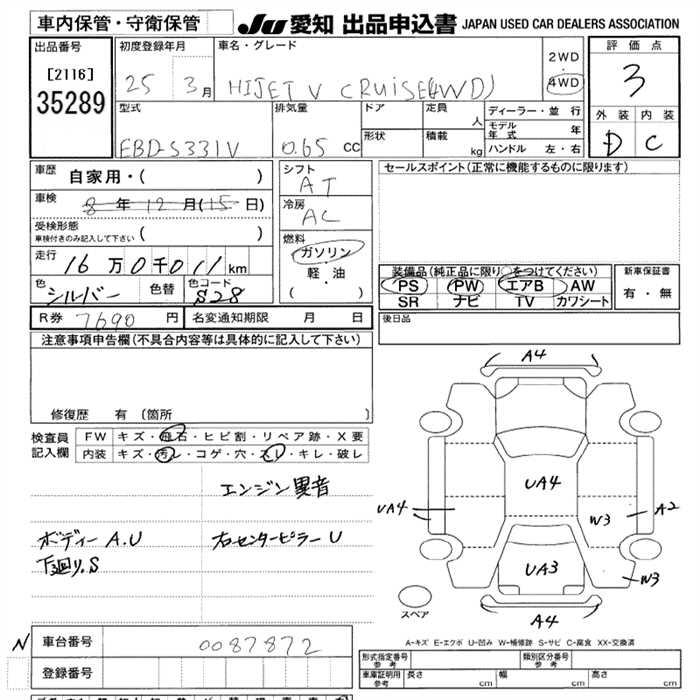 車内保管・守衛保管
JU 愛知 出品申込書 JAPAN USED CAR DEALERS ASSOCIATION
出品番号
[2116]
35289
初度登録年月
25 3月
車名・グレード
HIJET V CRUISE(4WD)
2WD
4WD
評価点
3
外装 内装
D C
型式
EBD-S331V
排気量
0.65 cc
ドア
形状
定員
人
積載
kg
ディーラー・並行
モデル年式 年
ハンドル 左・右
車歴
自家用・( )
車検
8年12月(15日)
受検形態
車検付きのみ記入して下さい ( )
走行
16万0千011km
色
シルバー
色替
色コード
S28
シフト
AT
冷房
AC
燃料
ガソリン
・
軽・油
( )
セールスポイント(正常に機能するものに限ります)
装備品(純正品に限り)○をつけてください)
PS PW エアB AW
SR ナビ TV カワシート
新車保証書
有・無
R券 7690 円
名変通知期限 月 日
後日品
注意事項申告欄(不具合内容等は具体的に記入して下さい)
修復歴 有(箇所 )
検査員記入欄
FW キズ・飛石・ヒビ割・リペア跡・X要
内装 キズ・汚レ・コゲ・穴・スレ・キレ・破レ
エンジン異音
ボディーA.U
右センターピラーU
下廻り.S
A4
UA4
UA4
W3
A2
UA3
W3
A4
スペア
A-キズ E-エクボ U-凹み W-補修跡 S-サビ C-腐食 XX-交換済
N
車台番号
0087872
登録番号
形式指定番号
参考
類別区分番号
参考
車庫証明用
参考
長さ cm
幅 cm
高さ cm